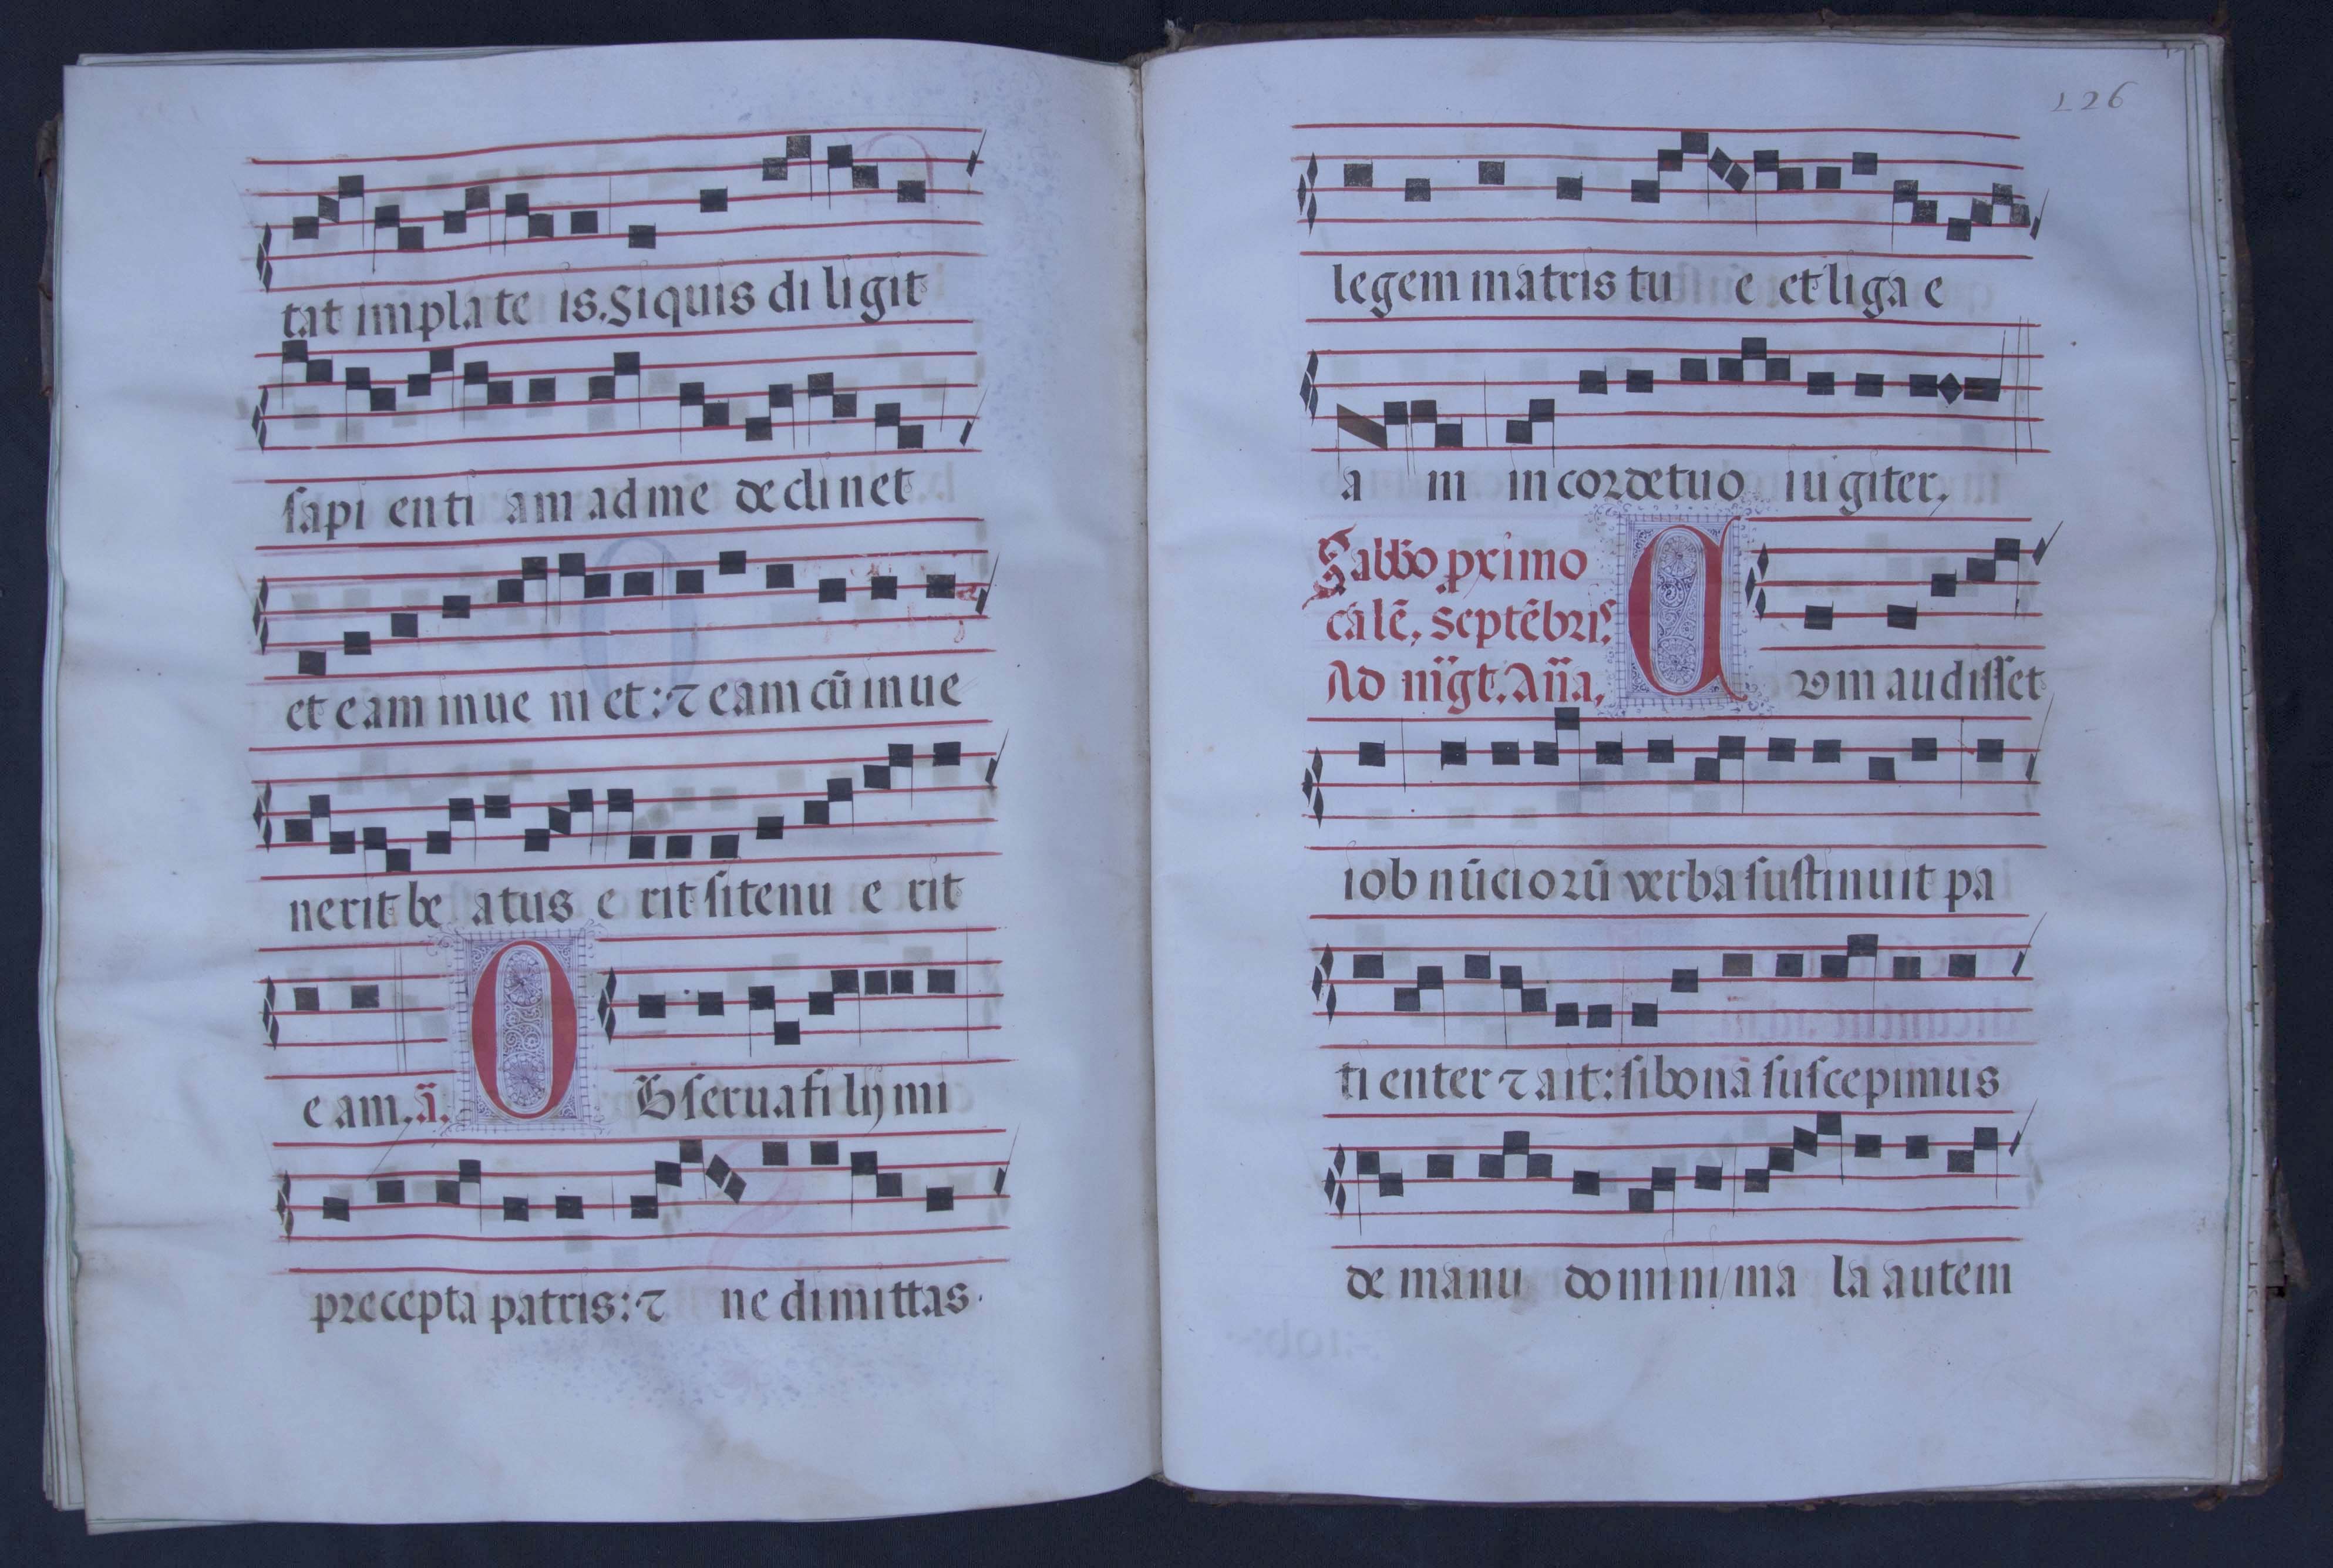 tat in plate is. Siquis di ligit
sapi enti am ad me declinet
et eam inue ni et: ⁊ eam cū inue
nerit be atus e rit si tenu e rit
e am. ā. O Bserua fi lij mi
precepta patris: ⁊ ne dimittas.
126
legem matris tu e et liga e
a m in corde tuo iugiter.
Sabbō pximo
calē. Septēbris.
Ad mḡt. Aña. C Vm audisset
iob nūciorū verba sustinuit pa
ti enter ⁊ ait: si bonā suscepimus
de manu domini/ma la autem